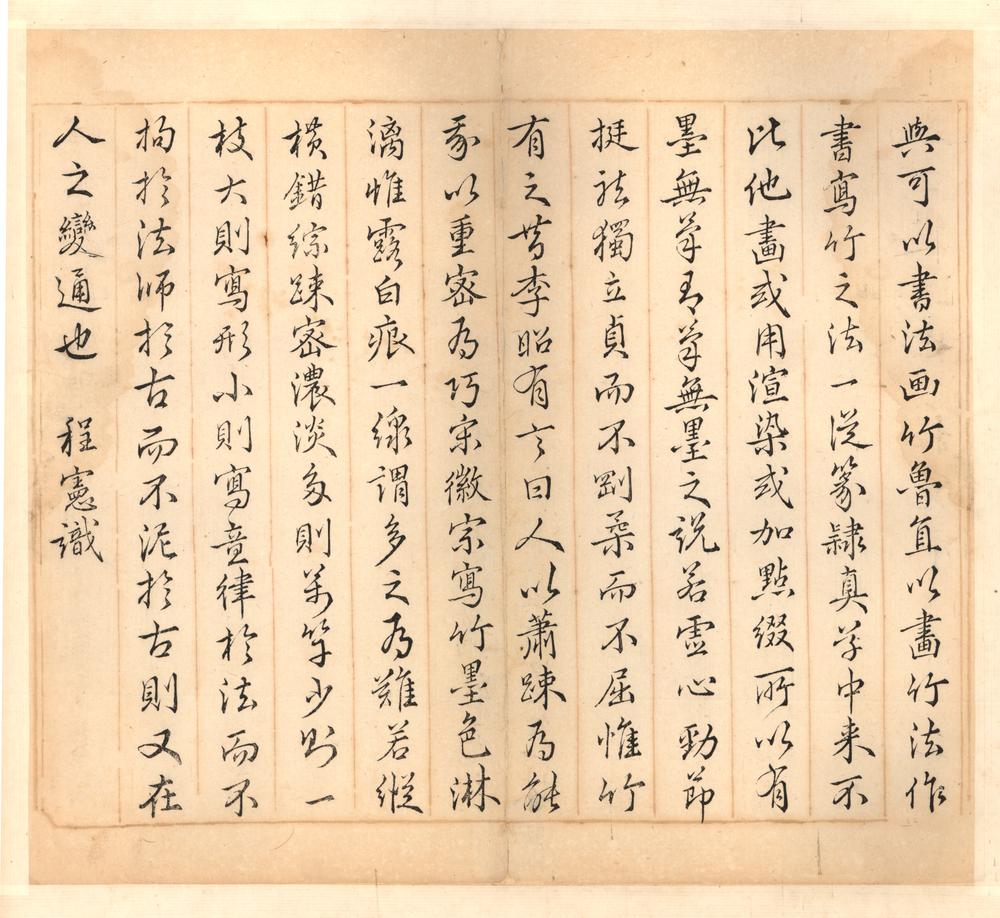 與可以書法画竹魯直以畫竹法作
書寫竹之法一從篆隸真草中来不
比他畫或用渲染或加點綴所以有
墨無筆有筆無墨之説若虛心勁節
挺然獨立貞而不剛柔而不屈惟竹
有之昔李昭有言曰人以蕭踈為能
我以重密為巧宋徽宗寫竹墨色淋
漓惟露白痕一線謂多之為難若縱
橫錯綜踈密濃淡多則萬竿少則一
枝大則寫形小則寫意律於法而不
拘於法師於古而不泥於古則又在
人之變通也　程憲識